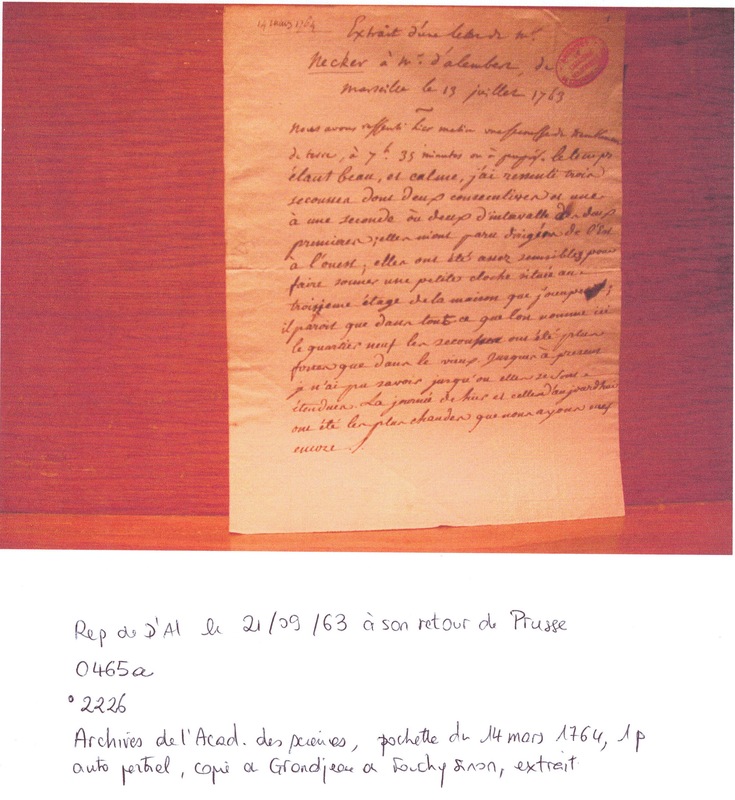 14 mars 1764
Extrait d'une lettre de mr.
Necker à mr. d'alembert, de
marseille le 13 juillet 1763
Nous avons ressenti hier matin une secousse de tremblement
de terre, à 7h. 35 minutes ou à peu près. le temps
étant beau, et calme, j'ai ressenti trois
secousses dont deux consecutives et une
à une seconde ou deux d'intervalle des deux
premieres; elles m'ont paru dirigées de l'Est
à l'ouest, elles ont été assez sensibles pour
faire sonner une petite cloche située au
troisieme étage de la maison que j'occupe;
il paroit que dans tout ce que l'on nomme ici
le quartier neuf les secousses ont été plus
fortes que dans le vieux. Jusques à present
je n'ai pu savoir jusqu'ou elles se sont
étendues. La journée de hier et celle d'aujourdhui
ont été les plus chaudes que nous ayons eues
encore.
Rep de D'Al le 21/09/63 à son retour de Prusse
0465a
°2226
Archives de l'Acad. des sciences, pochette du 14 mars 1764, 1p
auto partiel, copie de Grandjean de Fouchy sinon, extrait